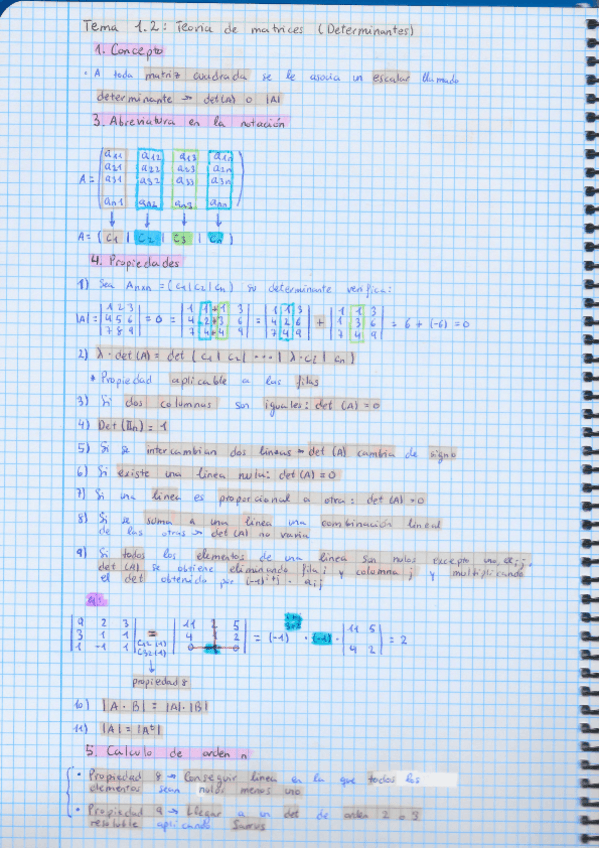 Tema 1.2: Teoría de matrices (Determinantes)
1. Concepto
• A toda matriz cuadrada se le asocia un escalar llamado
determinante → det(A) o |A|
3. Abreviatura en la notación
a11 a12 a13 a1n
a21 a22 a23 a2n
A = a31 a32 a33 a3n
an1 an2 an3 ann
A = ( C1 | C2 | C3 | Cn )
4. Propiedades
1) Sea Anxn = (C1|C2|Cn) su determinante verifica:
1 2 3 1 1+1 3 1 1 3 1 1 3
|A| = 4 5 6 = 0 = 4 2+3 6 = 4 2 6 + 1 3 6 = 6 + (-6) = 0
7 8 9 7 4+4 9 7 4 9 7 4 9
2) λ · det(A) = det ( C1 | C2 | ... | λ·C2 | Cn )
* Propiedad aplicable a las filas
3) Si dos columnas son iguales: det (A) = 0
4) Det (In) = 1
5) Si se intercambian dos líneas → det (A) cambia de signo
6) Si existe una línea nula: det (A) = 0
7) Si una línea es proporcional a otra: det (A) = 0
8) Si se suma a una línea una combinación lineal
de las otras → det (A) no varía
9) Si todos los elementos de una línea son nulos excepto uno, aij,
det (A) se obtiene eliminando fila i y columna j y multiplicando
el det obtenido por (-1)i+j · aij
Ej:
9 2 3 11 2 5
3 1 1 = 4 1 2 = (-1) · (-1) · 11 5 = 2
1 -1 1 C12(1) 0 -1 0 4 2
C32(1)
propiedad 8
10) |A · B| = |A| · |B|
11) |A| = |At|
5. Calculo de orden n
• Propiedad 8 → Conseguir línea en la que todos los
elementos sean nulos menos uno
• Propiedad 9 → Llegar a un det de orden 2 o 3
resoluble aplicando Sarrus